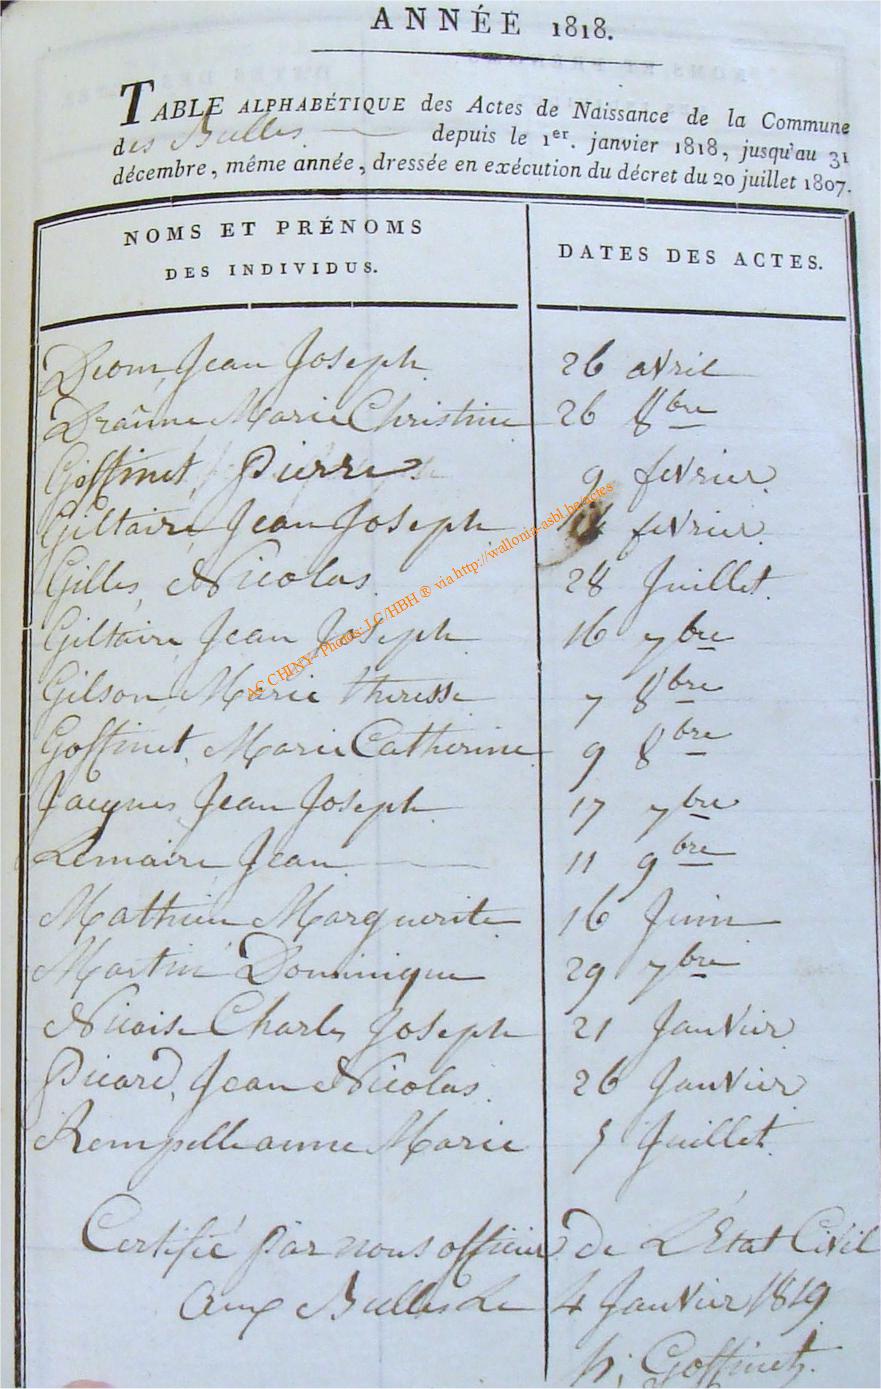 ANNÉE 1818.
TABLE ALPHABÉTIQUE des Actes de Naissance de la Commune
des Bulles. depuis le 1er. janvier 1818, jusqu'au 31
décembre, même année, dressée en exécution du décret du 20 juillet 1807.
NOMS ET PRÉNOMS DES INDIVIDUS. DATES DES ACTES.
Diom, Jean Joseph 26 avril
Marie Christine 26 8bre
Goffinet, Pierre. 9 fevrier.
Giltaire, Jean Joseph fevrier.
Gilles, Nicolas. 28 Juillet.
Giltaire Jean Joseph 16 7bre
Gilson, Marie theresse 7 8bre
Goffinet, Marie Catherine 9 8bre
Jacques, Jean Joseph 17 7bre
Lemaire, Jean 11 9bre
Mathieu Marguerite 16 Juin
Martin Dominique 29 7bre
Nicaise Charles Joseph 21 Janvier
Picard, Jean Nicolas. 26 Janvier
Rempelle anne Marie 5 Juillet.
Certifié par nous officier de L'État Civil
aux Bulles Le 4 Janvier 1819
h; Goffinet.
AC CHINY- Photos: LC/HBH ® via http://wallonia-asbl.be/actes